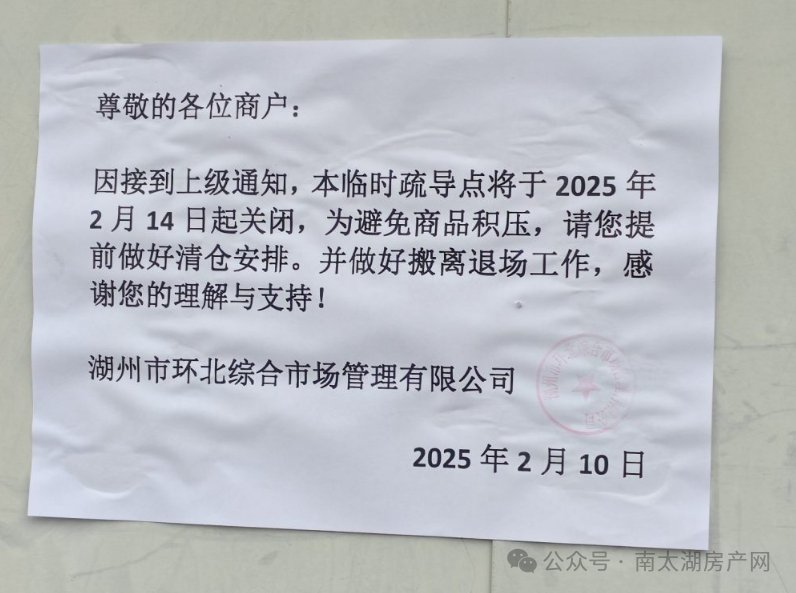 尊敬的各位商户：
因接到上级通知，本临时疏导点将于 2025 年
2 月 14 日起关闭，为避免商品积压，请您提
前做好清仓安排。并做好搬离退场工作，感
谢您的理解与支持！
湖州市环北综合市场管理有限公司
2025 年 2 月 10 日
公众号·南太湖房产网